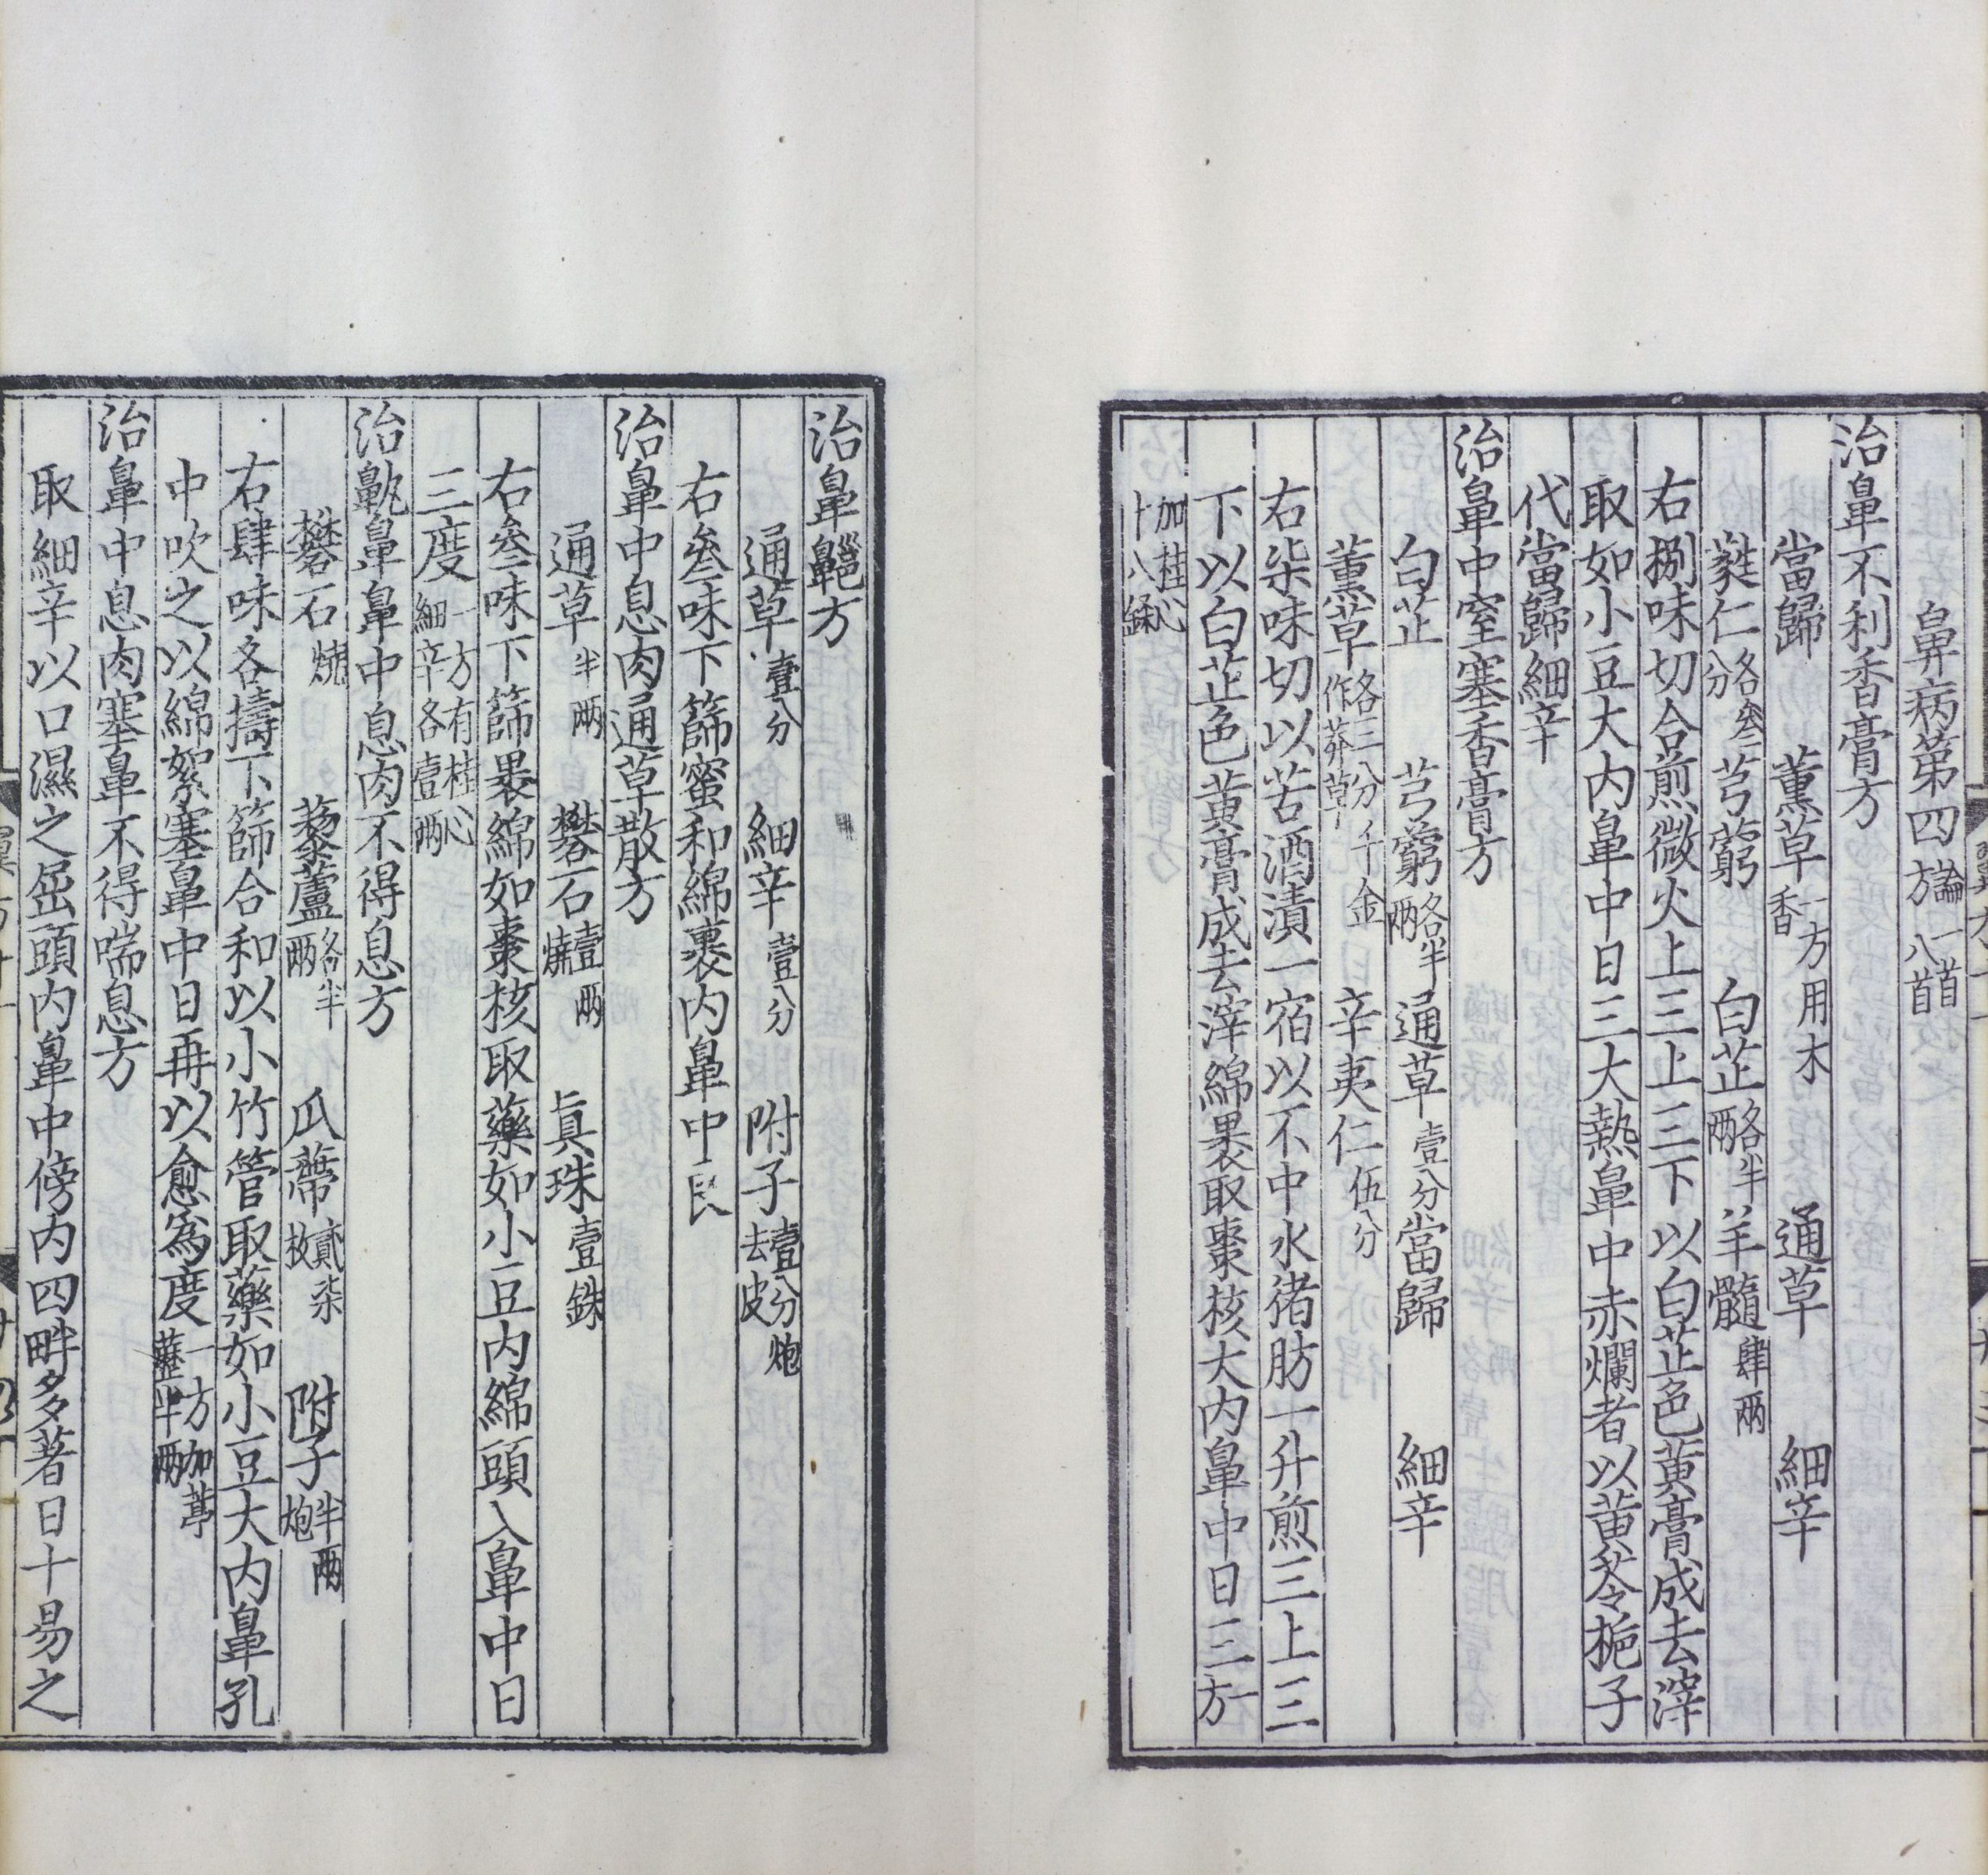 鼻病第四論一首方八首
治鼻不利香膏方
當歸 薰草一方用木香 通草 細辛
蕤仁各叁分 芎藭 白芷各半兩 羊髓肆兩
右捌味切合煎微火上三上三下以白芷色黄膏成去滓
取如小豆大内鼻中日三大熱鼻中赤爛者以黄芩梔子
代當歸細辛
治鼻中窒塞香膏方
白芷 芎藭各半兩 通草壹分 當歸 細辛
薰草各三分千金作莽草 辛夷仁伍分
右柒味切以苦酒漬一宿以不中水猪肪一升煎三上三
下以白芷色黄膏成去滓綿裹取棗核大内鼻中日三一方
加桂心十八銖
治鼻齆方
通草壹分 細辛壹分 附子壹分炮去皮
右叁味下篩蜜和綿裹内鼻中良
治鼻中息肉通草散方
通草半兩 礬石壹兩燒 真珠壹銖
右叁味下篩裹綿如棗核取藥如小豆内綿頭入鼻中日
三度一方有桂心細辛各壹兩
治鼽鼻鼻中息肉不得息方
礬石燒 藜蘆各半兩 瓜蔕貳柒枚 附子半兩炮
右肆味各擣下篩合和以小竹管取藥如小豆大内鼻孔
中吹之以綿絮塞鼻中日再以愈爲度一方加葶藶半兩
治鼻中息肉塞鼻不得喘息方
取細辛以口濕之屈頭内鼻中傍内四畔多著日十易之